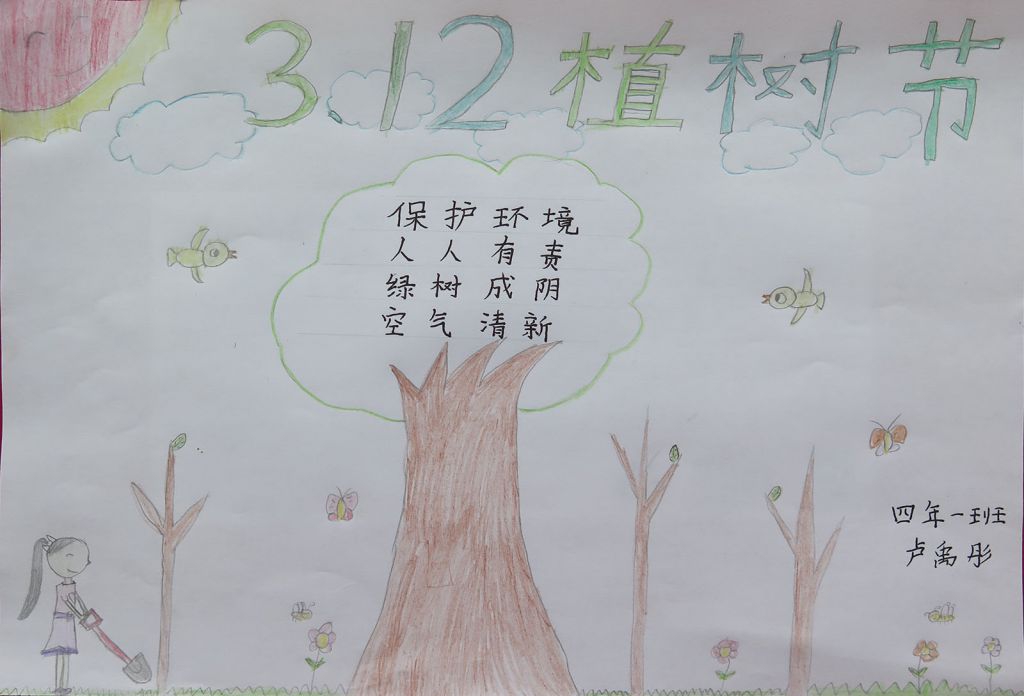 3 12 植树节
保护环境
人人有责
绿树成阴
空气清新
四年一班
卢禹彤